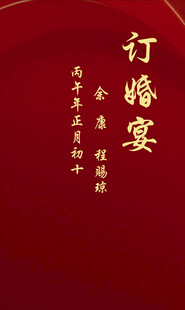 订婚宴
余康 程赐琼
丙午年正月初十